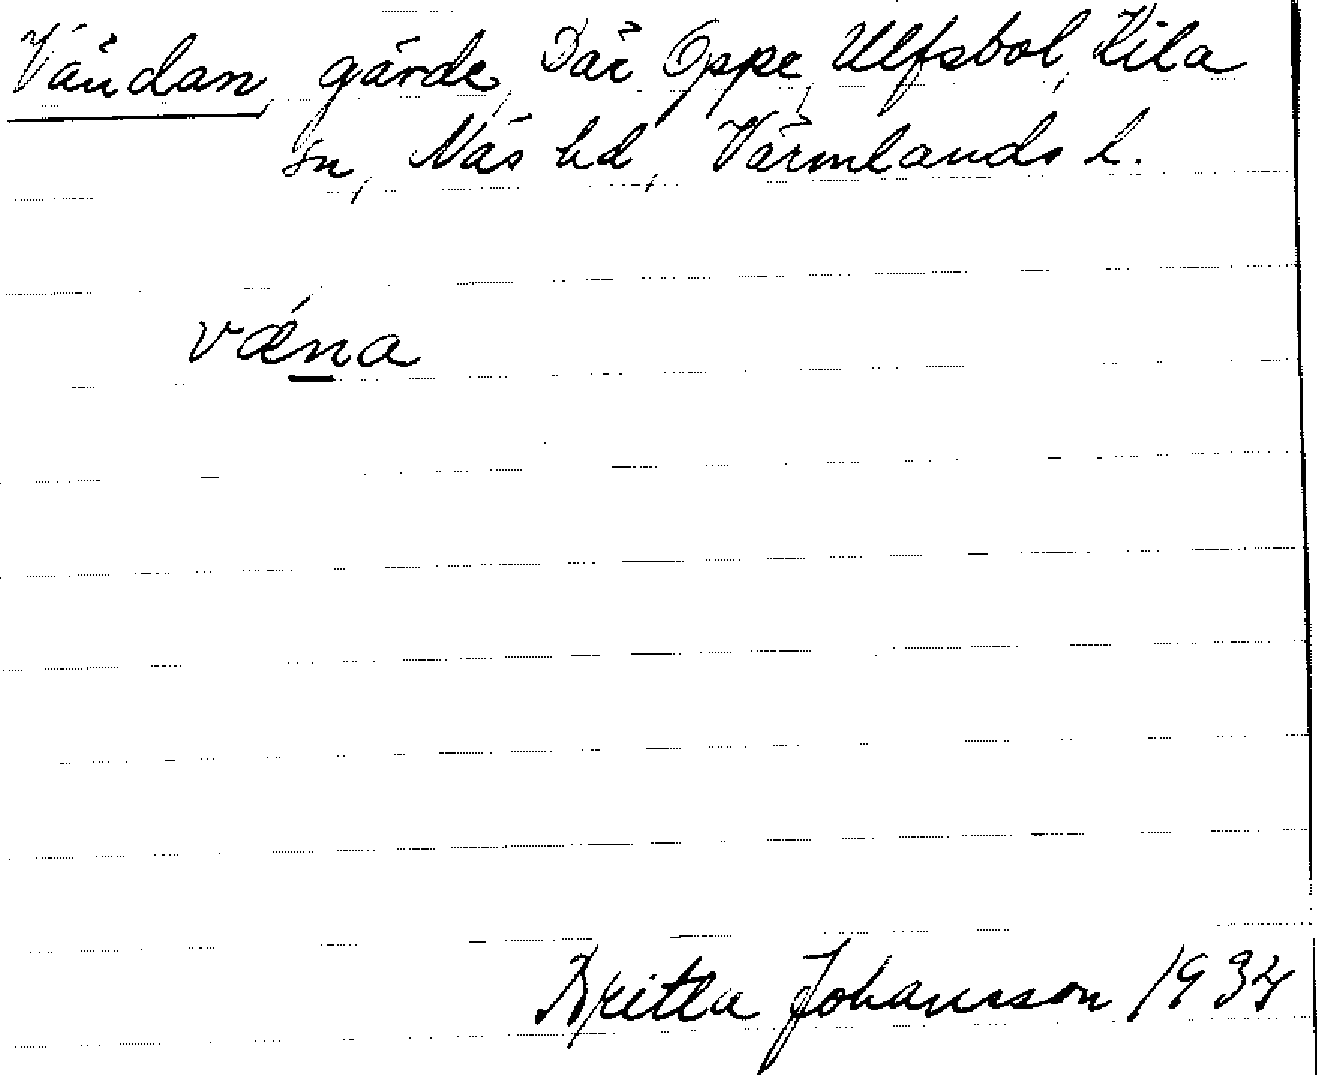 Vändan, gärde, Där Oppe, Ulfsbol, Kila
sn, Näs hd, Värmlands L.
væ´na
Britta Johansson 1934